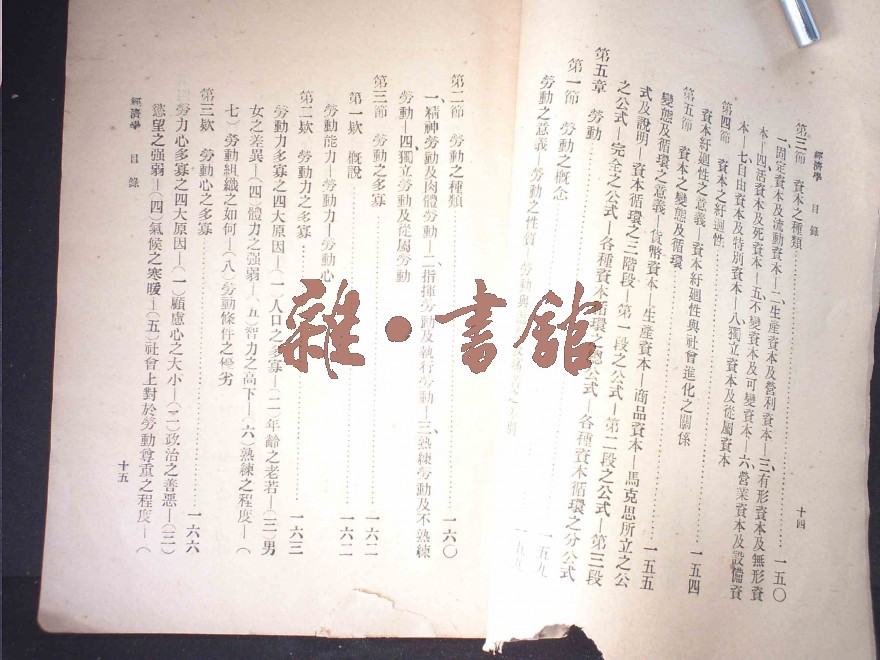 經濟學 目錄
十四
第三節 資本之種類……一五〇
一、固定資本及流動資本—二、生產資本及營利資本—三、有形資本及無形資
本—四、活資本及死資本—五、不變資本及可變資本—六、營業資本及設備資
本—七、自由資本及特別資本—八、獨立資本及從屬資本
第四節 資本之紆迴性……一五四
資本紆迴性之意義—資本紆迴性與社會進化之關係
第五節 資本之變態及循環……一五五
變態及循環之意義—貨幣資本—生產資本—商品資本—馬克思所立之公
式及說明—資本循環之三階段—第一段之公式—第二段之公式—第三段
之公式—完全之公式—各種資本循環總公式—各種資本循環之分公式
第五章 勞動……一五九
第一節 勞動之概念……一五九
勞動之意義—勞動之性質—勞動與
第二節 勞動之種類……一六〇
一、精神勞動及肉體勞動—二、指揮勞動及執行勞動—三、熟練勞動及不熟練
勞動—四、獨立勞動及從屬勞動
第三節 勞動之多寡……一六二
第一欵 概說……一六二
勞動能力—勞動力—勞動心
第二欵 勞動力之多寡……一六三
勞動力多寡之四大原因—(一)人口之多寡—(二)年齡之老若—(三)男
女之差異—(四)體力之强弱—(五)智力之高下—(六)熟練之程度—(
七)勞動組織之如何—(八)勞動條件之優劣
第三欵 勞動心之多寡……一六六
勞力心多寡之四大原因—(一)顧慮心之大小—(二)政治之善惡—(三)
慾望之强弱—(四)氣候之寒暖—(五)社會上對於勞動尊重之程度—(
經濟學 目錄
十五
雜·書館